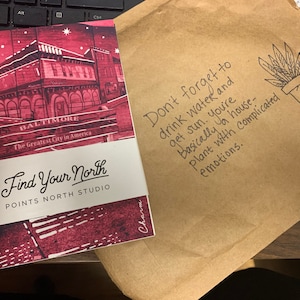 BALTIMORE
The Greatest City in America
Find Your North
POINTS NORTH STUDIO
Charm
Don't forget to
drink water and
get sun. You're
basically a house-
plant with complicated
emotions.